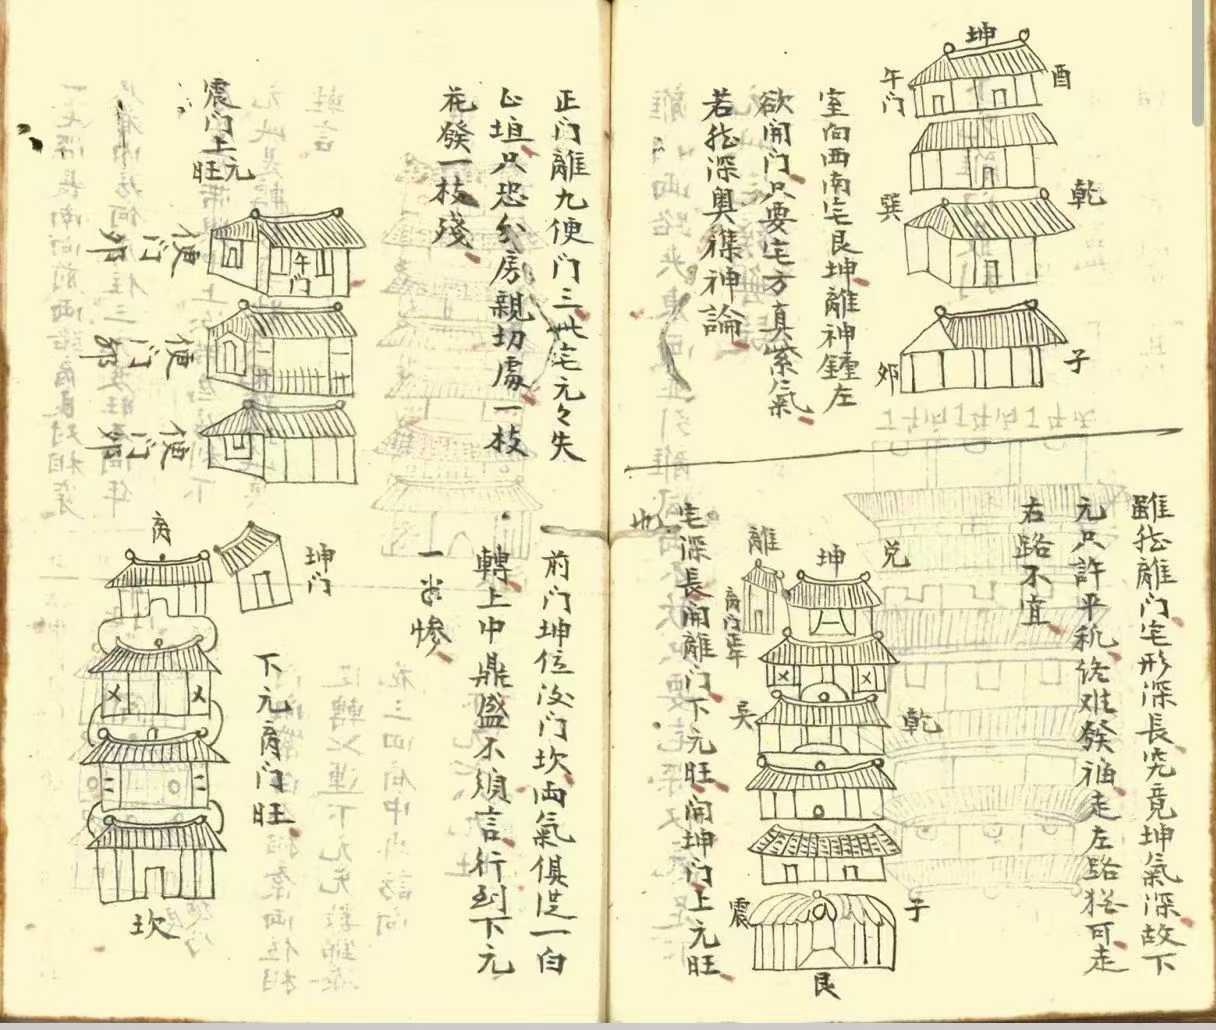 坤
酉
午门
乾
巽
子
卯
室向西南宅艮坤離神鍾左
欲開门只要宅方真紫氣
若能深奥穕神論
雖能離门宅形深長究竟坤氣深故下
元只許平秕终难發福走左路猶可走
右路不宜
離
坤
兑
离门正午
巽
乾
震
子
艮
宅深長開離门下元旺開坤门上元旺
也
正门離九便门三此宅元々失
以埴只恐分房親切處一枝
花發一枝殘
震门上元旺
午门
便门卯
便门卯
便门卯
前门坤位没门坎両氣俱從一白
轉上中鼎盛不須言行到下元
一步惨
离
坤门
下元离门旺
坎